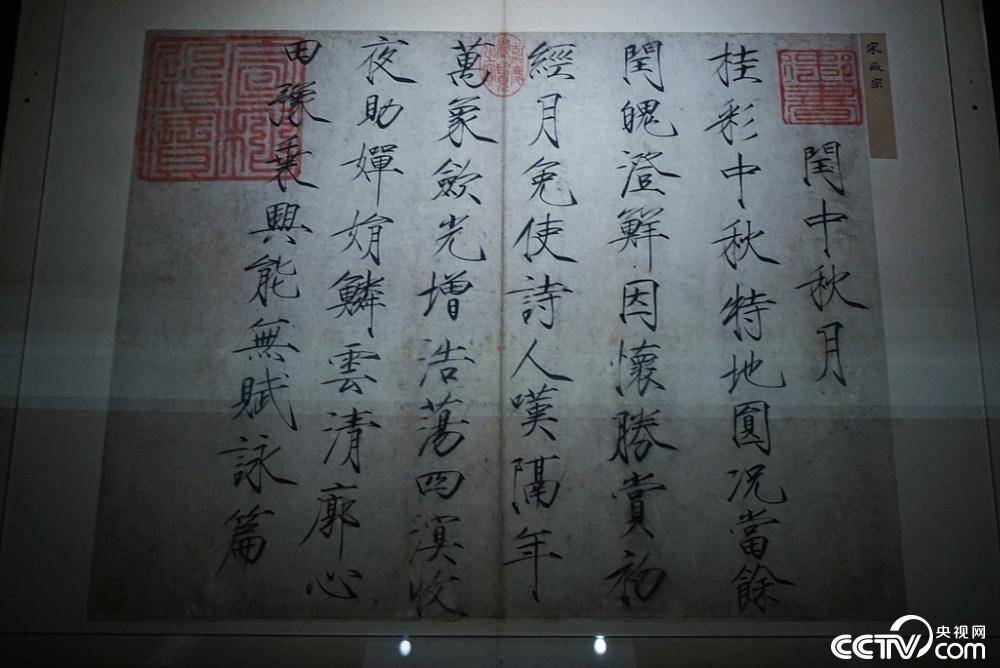 宋徽宗
御書
閏中秋月
桂彩中秋特地圓況當餘
閏魄澄鮮因懷勝賞初
經月免使詩人嘆隔年
萬象歛光增浩蕩四溟收
夜助嬋娟鱗雲清廓心
田豫乗興能無賦詠篇
CCTV.com 央视网